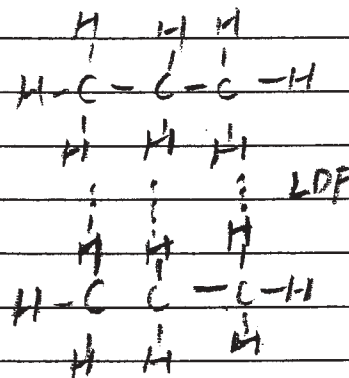 H H H
H - C - C - C - H
H H H
LDF
H H H
H - C C - C - H
H H H